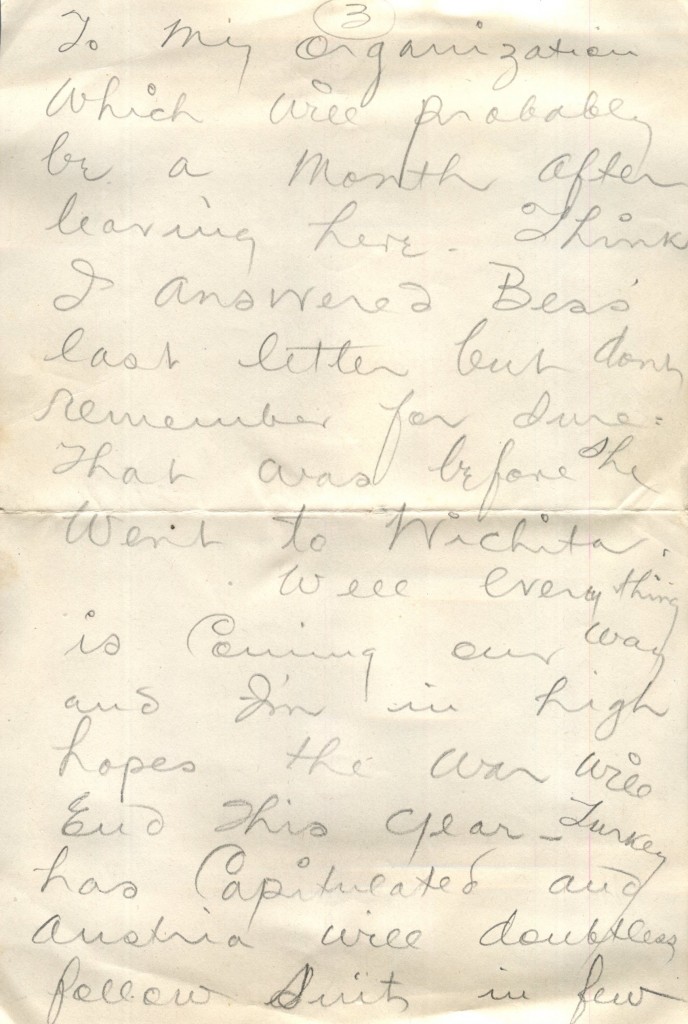 3
To my organization
which will probably
be a month after
leaving here. Think
I answered Bess'
last letter but dont
remember for sure.
That was before she
went to Wichita.
Well everything
is coming our way
and I'm in high
hopes the war will
end this year - Turkey
has capitulated and
Austria will doubtless
follow suit in few